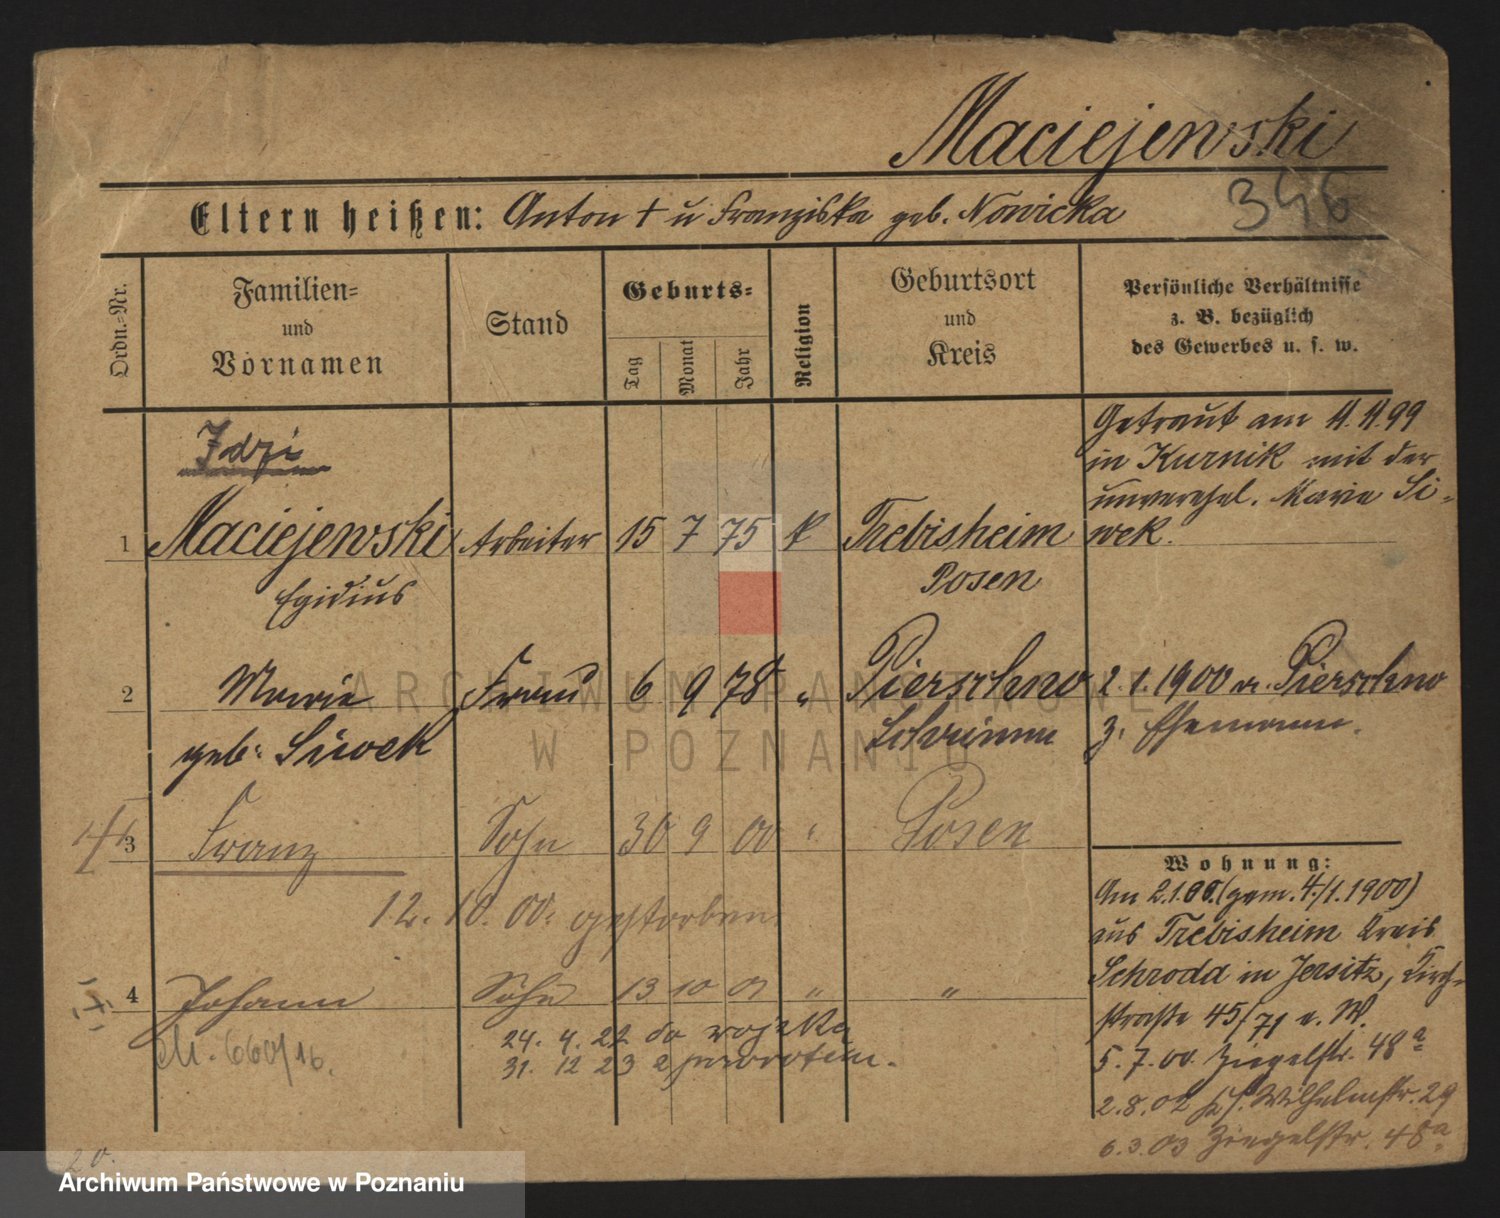 Maciejewski
346
Eltern heißen: Anton † u Franziska geb. Nowicka
Ordn.-Nr.
Familien-
und
Vornamen
Stand
Geburts-
Tag
Monat
Jahr
Religion
Geburtsort
und
Kreis
Persönliche Verhältnisse
z. B. bezüglich
des Gewerbes u. s. w.
Idzi
Getraut am 11.11.99
in Kurnik mit der
unverehel. Marie Si-
wek.
1 Maciejewski Arbeiter 15 7 75 k Trebisheim
Egidius Posen
2 Marie Frau 6 9 78 " Pierschno 2.1.1900 v. Pierschno
geb. Siwek Schrimm z. Ehemann.
3 Franz Sohn 30 9 00 " Posen
12. 10. 00. gestorben
4 Johann Sohn 13 10 01 " "
M. 660/16.
24. 4. 22 do wojska
31. 12 23 z powrotem.
Wohnung:
Am 2.1.00. (gem. 4./1.1900)
aus Trebisheim Kreis
Schroda in Jersitz, Kirch-
straße 45/71 v. W.
5.7.00 Ziegelstr. 48a
2.8.02 Wilhelmstr. 29
6.3.03 Ziegelstr. 48a
20.
ARCHIWUM PAŃSTWOWE
W POZNANIU
Archiwum Państwowe w Poznaniu